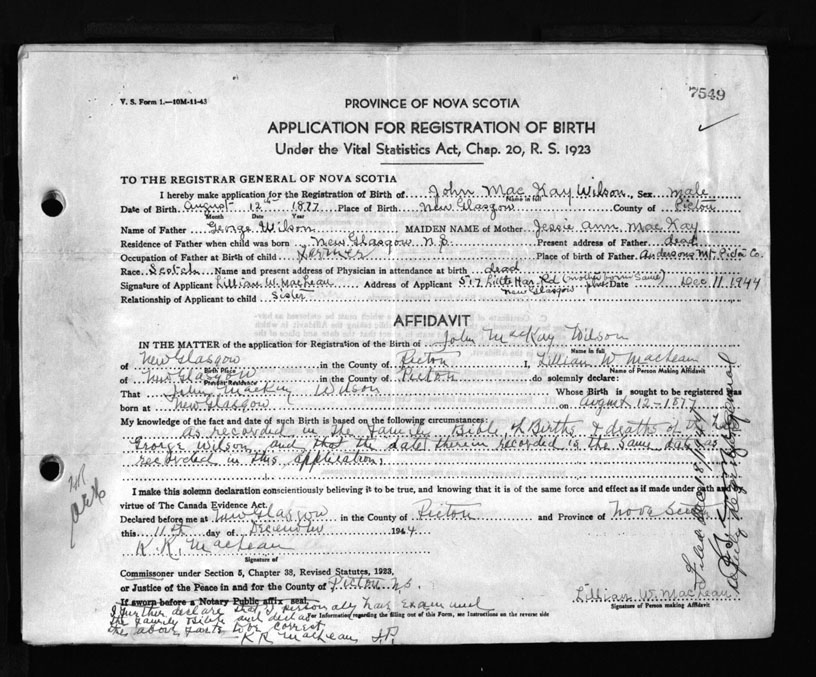 V. S. Form 1.—10M-11-43
7549
PROVINCE OF NOVA SCOTIA
APPLICATION FOR REGISTRATION OF BIRTH
Under the Vital Statistics Act, Chap. 20, R. S. 1923
TO THE REGISTRAR GENERAL OF NOVA SCOTIA
I hereby make application for the Registration of Birth of John MacKay Wilson, Sex male
Name in full
Date of Birth August 12th 1877 Place of Birth New Glasgow County of Pictou
Month Date Year
Name of Father George Wilson MAIDEN NAME of Mother Jessie Ann MacKay
Residence of Father when child was born New Glasgow N.S. Present address of Father dead
Occupation of Father at Birth of child Farmer Place of birth of Father Andersons Mt Pictou Co.
Race Scotch Name and present address of Physician in attendance at birth dead
Signature of Applicant Lillian W. MacLean Address of Applicant 517 Little Har. Rd (mother born same place) Date Dec 11 1944
New Glasgow
Relationship of Applicant to child Sister
AFFIDAVIT
IN THE MATTER of the application for Registration of the Birth of John MacKay Wilson
Name in full
of New Glasgow in the County of Pictou I, Lillian W. MacLean
Birth Place Name of Person Making Affidavit
of New Glasgow in the County of Pictou do solemnly declare:
Present Residence
That John MacKay Wilson Whose Birth is sought to be registered was
born at New Glasgow on August 12-1877
My knowledge of the fact and date of such Birth is based on the following circumstances:
as recorded in the Family Bible of Births & deaths of the late
George Wilson and that the date therein recorded is the same date as
recorded in this application.
I make this solemn declaration conscientiously believing it to be true, and knowing that it is of the same force and effect as if made under oath and
virtue of The Canada Evidence Act.
Declared before me at New Glasgow in the County of Pictou and Province of Nova Scotia
this 11th day of December 1944
K. R. MacLean
Signature of
Commissoner under Section 5, Chapter 38, Revised Statutes, 1923,
or Justice of the Peace in and for the County of Pictou N.S.
If sworn before a Notary Public affix seal.
Lillian W. MacLean
Signature of Person making Affidavit
I further declare that I personally have examined
the family Bible and declare
For Information regarding the filling out of this Form, see Instructions on the reverse side
the above facts to be correct
K R MacLean J.P.
Filed Dec 18/1944
Deputy Registrar General